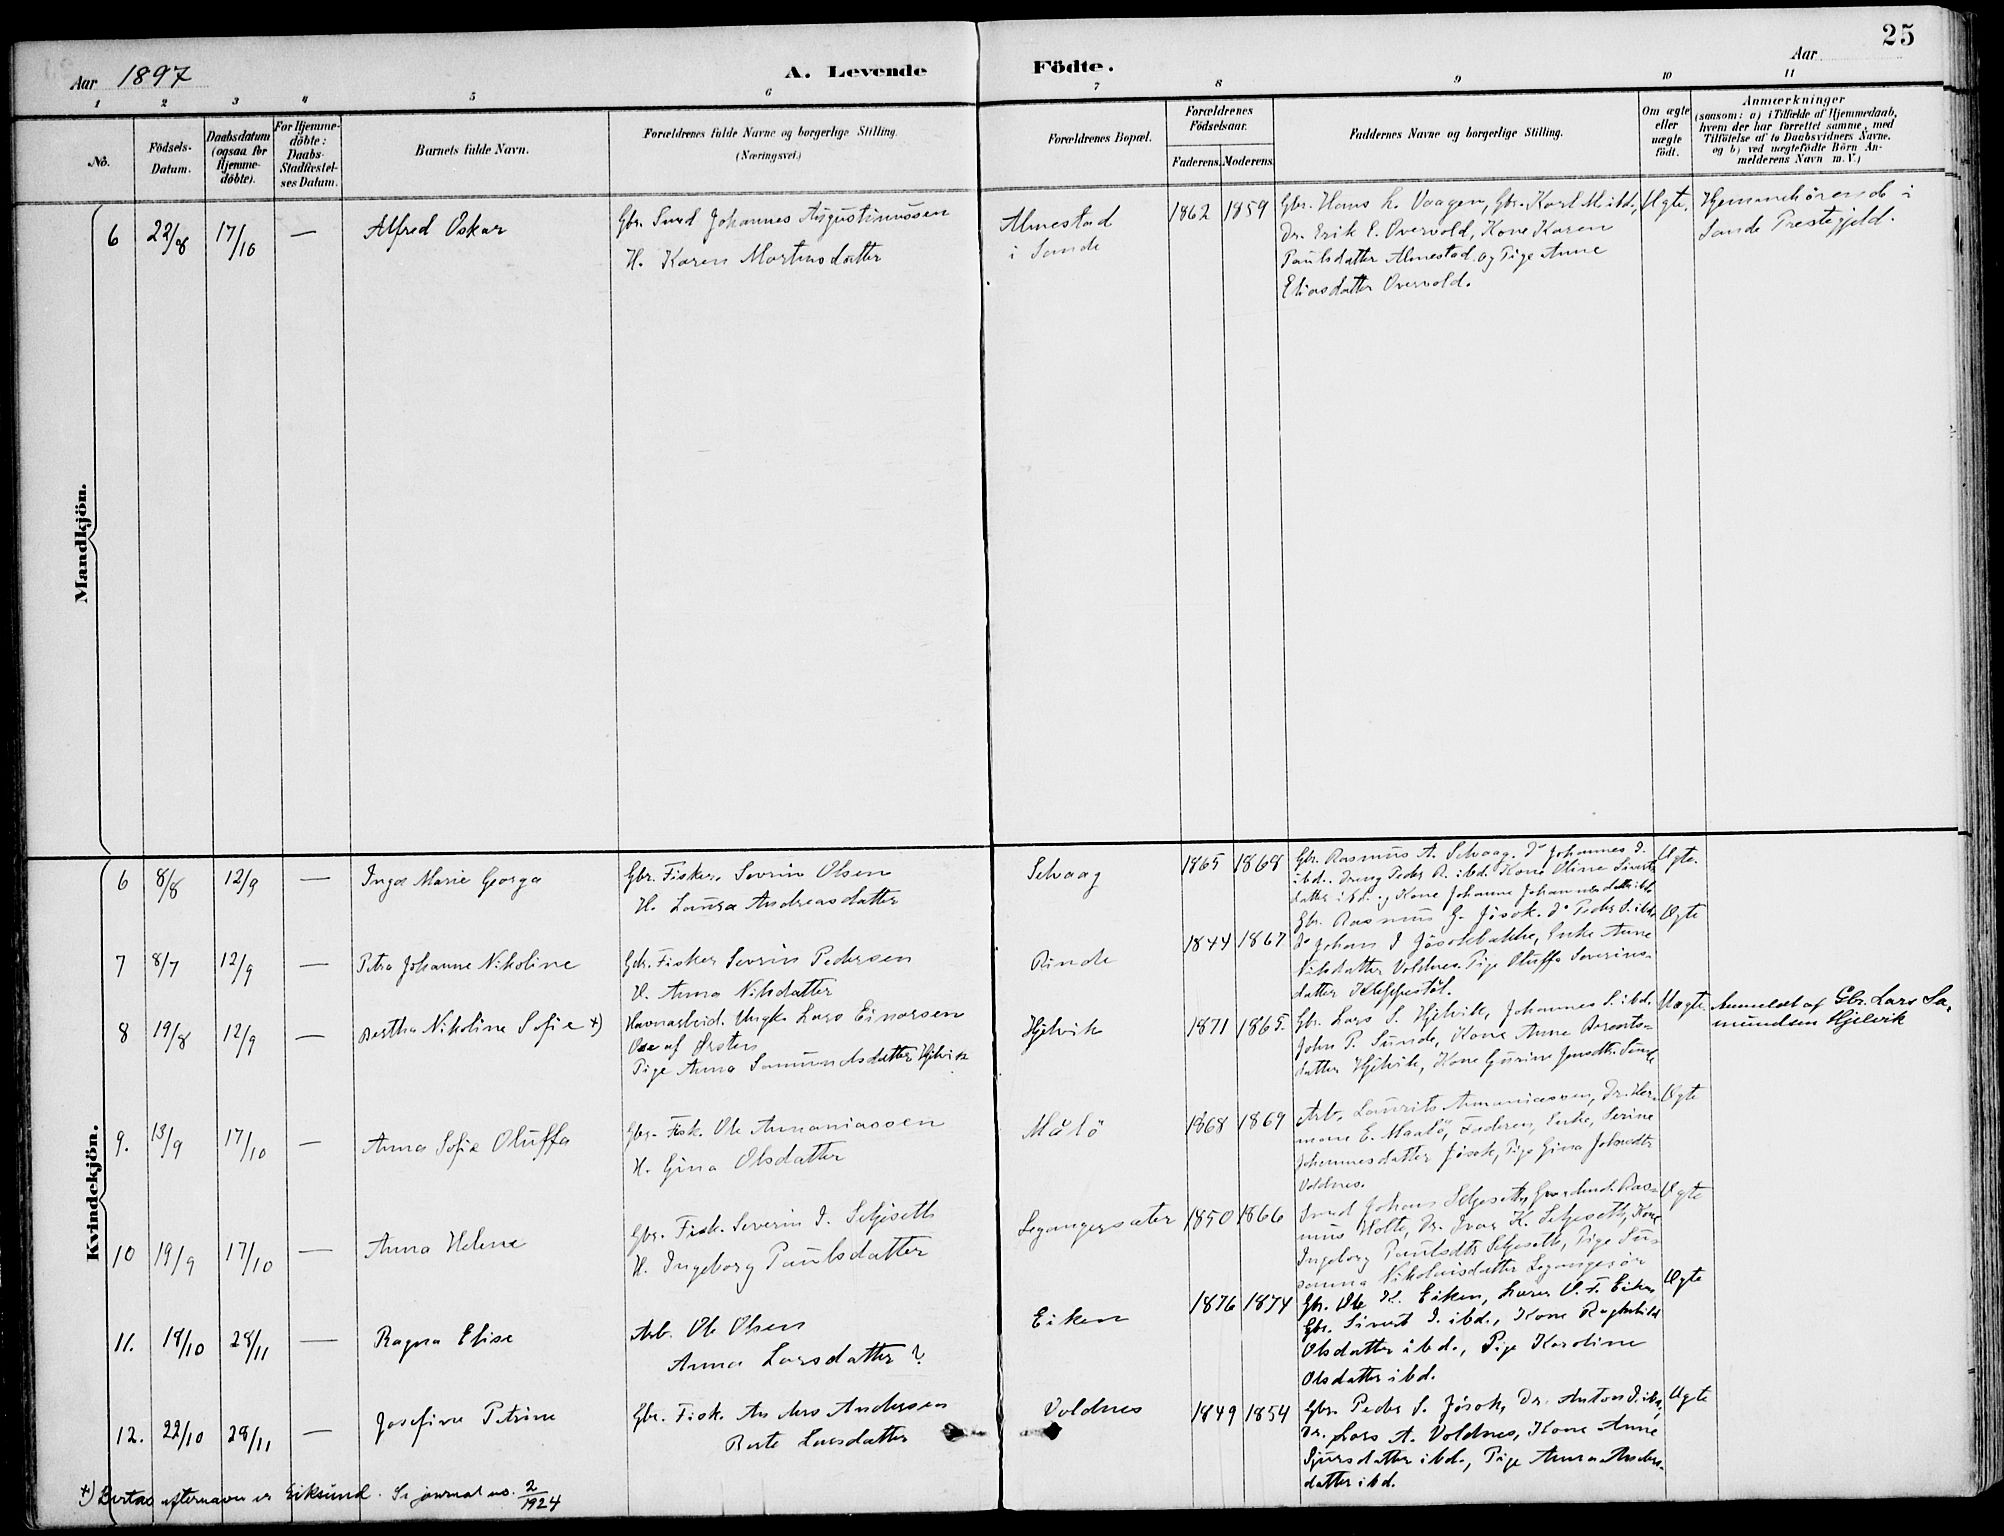 25
Aar 1897
A. Levende Födte.
Aar
1 2 3 4 5 6 7 8 9 10 11
No.
Födsels-
Datum.
Daabsdatum
(ogsaa for
Hjemme-
döbte).
For Hjemme-
döbte:
Daabs-
Stadfæstel-
ses Datum.
Barnets fulde Navn.
Forældrenes fulde Navne og borgerlige Stilling.
(Næringsvei.)
Forældrenes Bopæl.
Forældrenes
Födselsaar.
Faderens. Moderens.
Faddernes Navne og borgerlige Stilling.
Om ægte
eller
uægte
födt.
Anmærkninger
(saasom: a) i Tilfælde af Hjemmedaab,
hvem der har forrettet samme, med
Tilföielse af to Daabsvidners Navne,
og b) ved uægtefödte Börn An-
melderens Navn m. V.)
Mandkjön.
6 22/8 17/10 — Alfred Oskar
Gbr. Smed Johannes Augustinussen
H. Karen Martinsdatter
Almestad
i Sande
1862 1859
Gbr. Hans L. Vaagen, Gbr. Karl M. ibd.,
Dr. Erik E. Overvold, Kone Karen
Paulsdatter Almestad og Pige Anne
Eliasdatter Overvold.
Ægte.
Hjemmehörende i
Sande Prestegjeld.
Kvindekjön.
6 8/8 12/9 — Inga Marie Georga
Gbr. Fisker Sevrin Olsen
H. Laura Andreasdatter
Selvaag
1865 1868
Gbr. Rasmus A. Selvaag. Do Johannes J.
ibd. Dreng Peder R. ibd. Kone Oline Sivert-
datter ibd. og Kone Johanne Johannesdatter ibd.
Ægte.
7 8/7 12/9 — Petra Johanne Nikoline
Gbr. Fisker Sevrin Pedersen
H. Anna Nilsdatter
Rinde
1844 1867
Gbr. Rasmus G. Jösok. Do Peder S. ibd.
Do Johan J Jösokbakke, Enke Anne
Nilsdatter Voldnes. Pige Oluffa Severins-
datter Kleppestöl.
Ægte
8 19/8 12/9 — Bertha Nikoline Sofie +)
Havnarbeid. Ungk. Lars Einarsen
Ose af Örsten
Pige Anna Samundsdatter Hjelvik
Hjelvik
1871 1865.
Gbr. Lars S. Hjelvik, Johannes S. ibd.
John P. Sunde, Kone Anne Berents-
datter Hjelvik, Kone Gurine Jensdtr. Sunde
Uægte
Anmeldt af Gbr. Lars Sa-
mundsen Hjelvik
9. 13/9 17/10 — Anna Sofie Oluffa
Gbr. Fisk. Ole Annaniassen
H. Gina Olsdatter
Målö
1868 1869
Arb. Laurits Annaniassen, Dr. Her-
man E. Maalö, Faderen, Enke, Serine
Johannesdatter Jösok, Pige Gina Johnsdtr
Voldnes.
Ægte
10 19/9 17/10 — Anna Helene
Gbr. Fisk. Severin J. Setjeseth
H. Ingeborg Paulsdatter
Legangersæter
1850 1866
Smed Johans Setjeseth, Gaardmd. Ras-
mus Holte, Dr. Ivar K. Setjeseth, Kone
Ingeborg Paulsdtr Setjeseth, Pige Su-
sanna Nikolaisdatter Legangersör
Ægte
11. 18/10 28/11 — Ragna Elise
Arb. Ole Olsen
Anna Larsdatter ?
Eiken
1876 1874
Gbr. Ole K. Eiken, Lærer O. F. Eiken
Gbr. Sivert I. ibd., Kone Raghnhild
Olsdatter ibd., Pige Karoline
Olsdatter ibd.
Ægte
12. 22/10 28/11 — Josefine Petrine
Gbr. Fisk. Anders Andersen
Berte Larsdatter
Voldnes
1849 1854
Gbr. Peder S. Jösok, Dr. Anton I. ibd,
Dr. Lars A. Voldnes, Kone Anne
Sjursdatter ibd., Pige Anna Anders-
datter ibd.
Ægte
+) Bertas efternavn er Eiksund. Se journal no. 2/1924